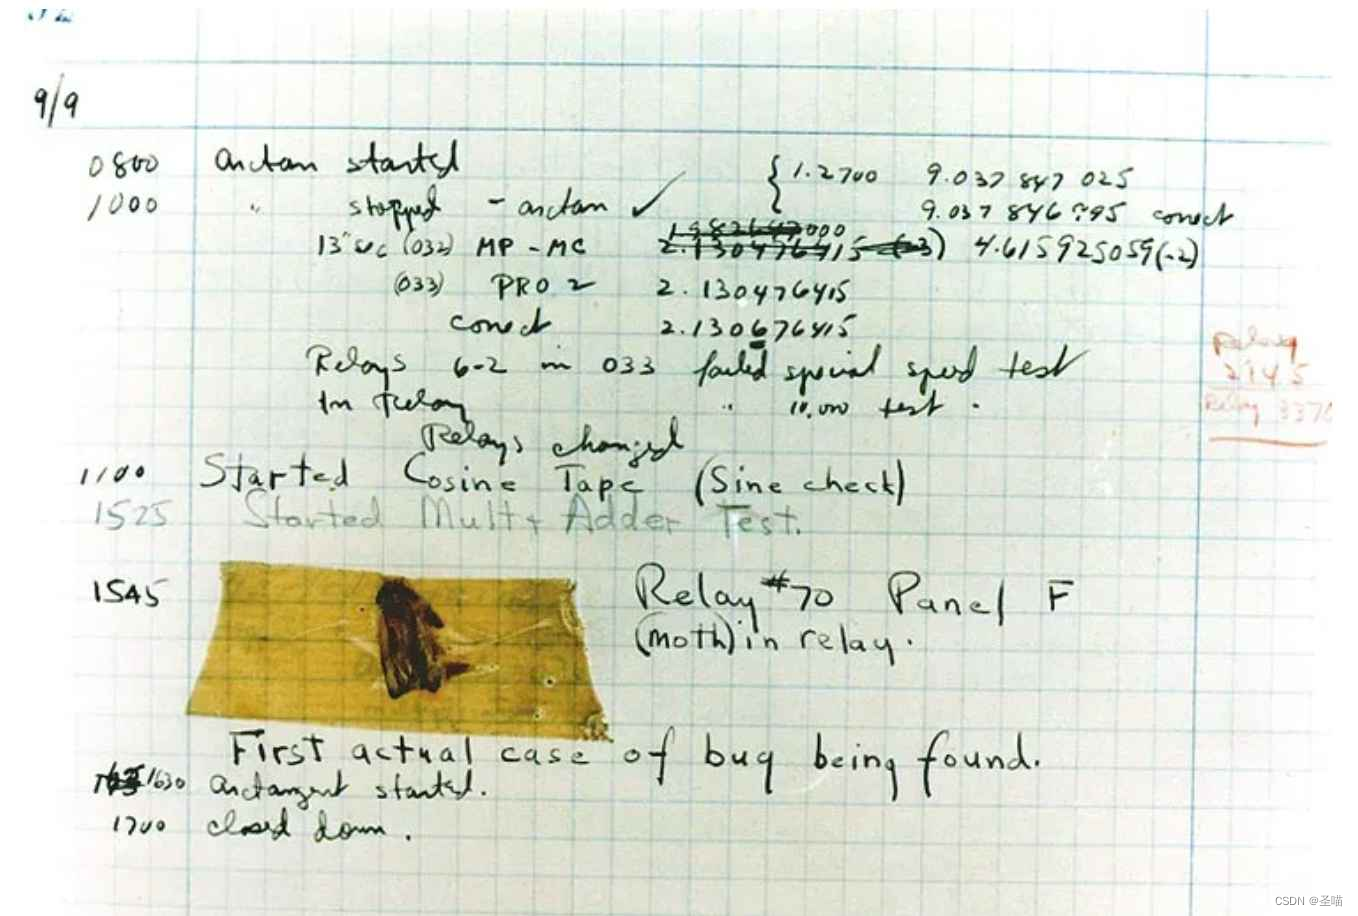 9/9
0800 arctan started { 1.2700 9.037 847 025
1000 " stopped - arctan ✓ 9.037 846 795 correct
13" sec (032) MP - MC 2.130476415 4.615925059(-2)
(033) PRO 2 2.130476415
correct 2.130676415
Relays 6-2 in 033 failed special speed test
In Relay " 10,000 test.
Relays changed
Relay
2145
Relay 3370
1100 Started Cosine Tape (Sine check)
1525 Started Mult + Adder Test.
1545 Relay #70 Panel F
(moth) in relay.
First actual case of bug being found.
1630 arctangent started.
1700 closed down.
CSDN @圣喵